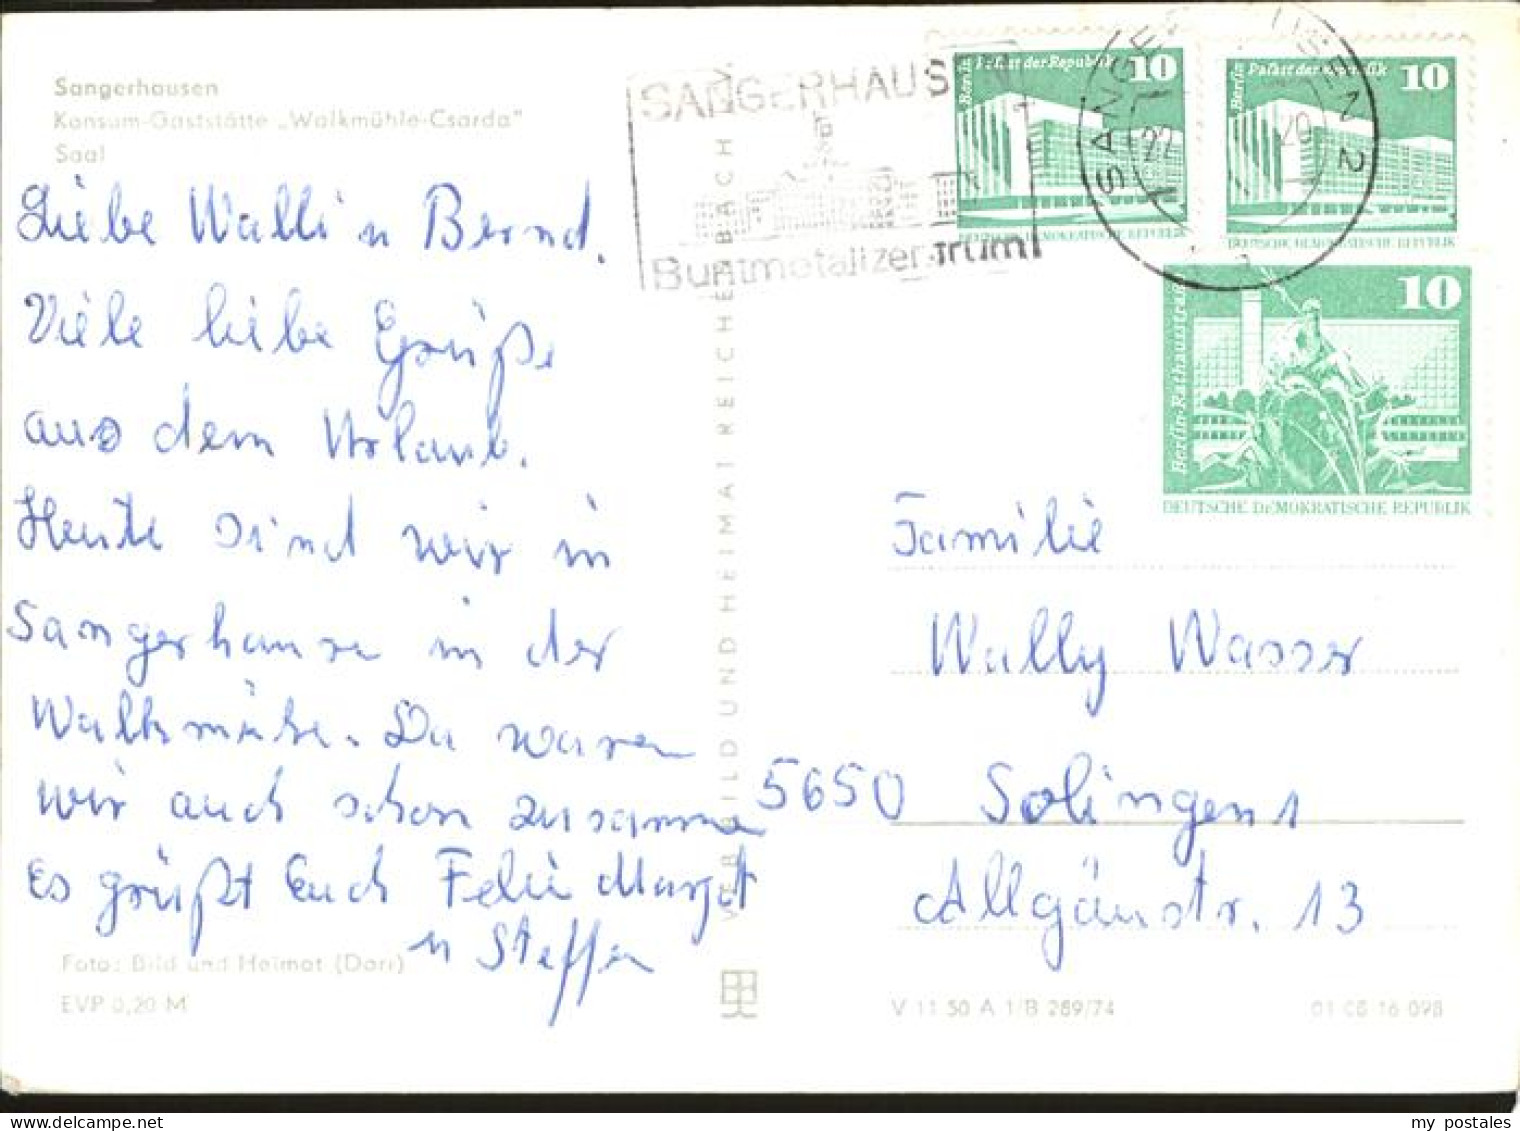 Sangerhausen
Konsum-Gaststätte „Walkmühle-Csarda"
Saal
Liebe Walli u Bernd.
Viele liebe Grüße
aus dem Urlaub.
Heute sind wir in
Sangerhausen in der
Walkmühle. Da waren
wir auch schon zusamme
Es grüßt Euch Felix Margit
u Steffen
Foto: Bild und Heimat (Dorr)
EVP 0,20 M
VEB BILD UND HEIMAT REICHENBACH V.
SANGERHAUSEN
Buntmetallzentrum
SANGERHAUSEN 2
22
20
Berlin Palast der Republik 10
DEUTSCHE DEMOKRATISCHE REPUBLIK
Berlin Palast der Republik 10
DEUTSCHE DEMOKRATISCHE REPUBLIK
Berlin-Rathausstraße 10
DEUTSCHE DEMOKRATISCHE REPUBLIK
Familie
Wally Wasser
5650 Solingen 1
Allgäustr. 13
V 11 50 A 1/B 289/74
01 08 16 098
my postales